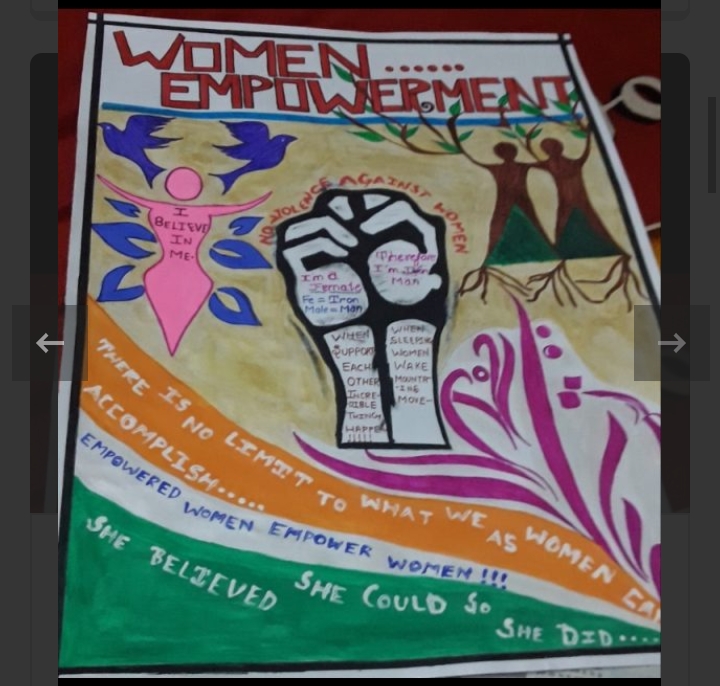 WOMEN......
EMPOWERMENT
NO VIOLENCE AGAINST WOMEN
I
BELIEVE
IN
ME.
I'm a
Female
Fe = Iron
Male = Man
Therefore
I'm Iron
Man
WHEN
SUPPORT
EACH
OTHER
INCRE-
DIBLE
THINGS
HAPPE
!!!!!
WHEN
SLEEPING
WOMEN
WAKE
MOUNTA-
-INS
MOVE--
THERE IS NO LIMIT TO WHAT WE AS WOMEN CAN
ACCOMPLISH.....
EMPOWERED WOMEN EMPOWER WOMEN!!!
SHE BELIEVED SHE COULD SO
SHE DID....